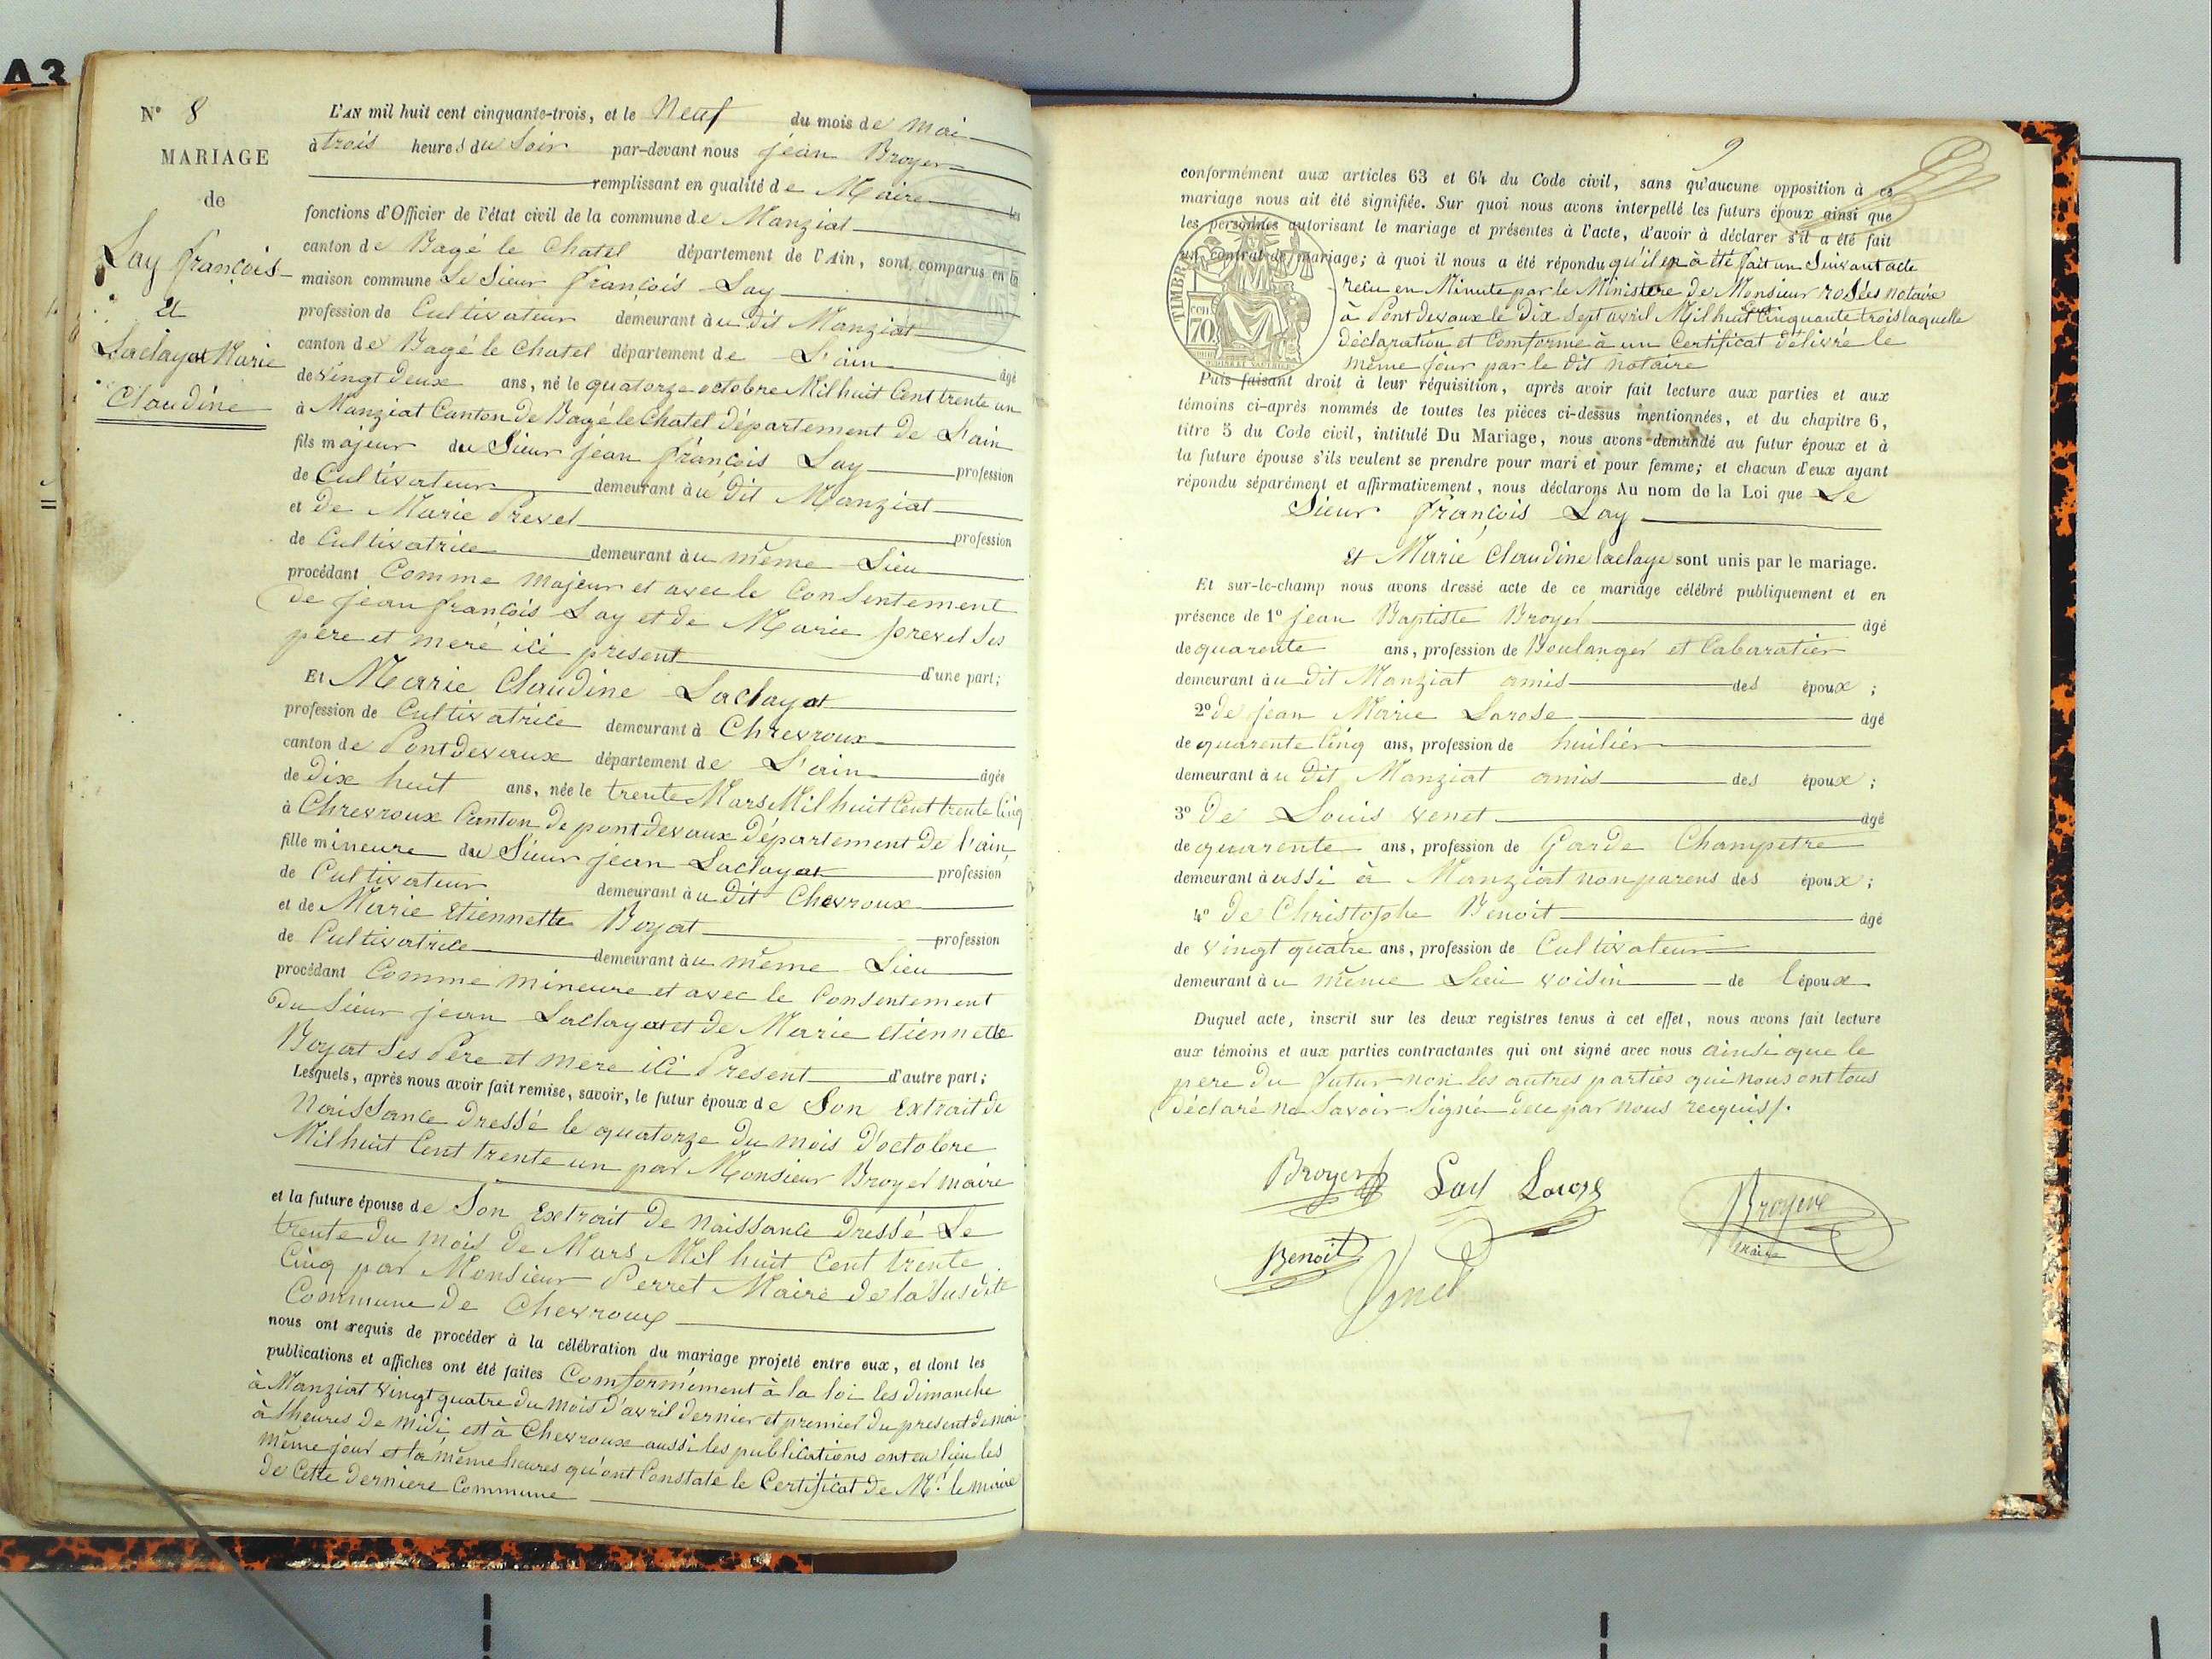 A3
N° 8
MARIAGE
de
Lay françois
et
Laclayat Marie
Claudine
L'AN mil huit cent cinquante-trois, et le Neuf du mois de mai
à trois heures du Soir par-devant nous jean Broyer
remplissant en qualité de Maire les
fonctions d'Officier de l'état civil de la commune de Manziat
canton de Bagé le Chatel département de l'Ain, sont comparus en la
maison commune Le Sieur françois Lay
profession de Cultivateur demeurant àu dit Manziat
canton de Bagé le Chatel département de L'ain âgé
de vingt deux ans, né le quatorze octobre Mil huit Cent trente un
à Manziat Canton de Bagé le Chatel département de L'ain
fils majeur du Sieur jean françois Lay profession
de Cultivateur demeurant àu dit Manziat
et de Marie Prevel profession
de Cultivatrice demeurant àu même Lieu
procédant Comme majeur et avec le Consentement
de jean françois Lay et de Marie prevel Ses
père et mere ici présent d'une part;
Et Marie Claudine Laclayat
profession de Cultivatrice demeurant à Chevroux
canton de Pontdevaux département de L'ain âgée
de dix huit ans, née le trente Mars Mil huit Cent trente Cinq
à Chevroux Canton de pontdevaux département de l'ain
fille mineure du Sieur jean Laclayat profession
de Cultivateur demeurant àu dit Chevroux
et de Marie Etiennette Boyat profession
de Cultivatrice demeurant àu même Lieu
procédant Comme mineure et avec le Consentement
du Sieur jean Laclayat et de Marie etiennette
Boyat Ses Père et mere ici Présent d'autre part;
Lesquels, après nous avoir fait remise, savoir, le futur époux de Son extrait de
Naissance dressé le quatorze du mois d'octobre
Mil huit Cent trente un par Monsieur Broyer maire
et la future épouse de Son Extrait de Naissance dressé Le
trente du mois de Mars Mil huit Cent trente
Cinq par Monsieur Perret Maire de la Susdite
Commune de Chevroux
nous ont requis de procéder à la célébration du mariage projeté entre eux, et dont les
publications et affiches ont été faites Comformément à la loi les dimanche
à Manziat vingt quatre du mois d'avril dernier et premier du present de mai
à heures de midi, est à Chevroux aussi les publications ont eu lieu les
même jour et la même heures qu'ont Constaté le Certificat de Mr. le maire
de Cette derniere Commune
9
conformément aux articles 63 et 64 du Code civil, sans qu'aucune opposition à ce
mariage nous ait été signifiée. Sur quoi nous avons interpellé les futurs époux ainsi que
les personnes autorisant le mariage et présentes à l'acte, d'avoir à déclarer s'il a été fait
un contrat de mariage; à quoi il nous a été répondu qu'il en à été fait un Suivant acte
TIMBRE
70
recu en Minute par le Ministere de Monsieur rosées notaire
à Pontdevaux le Dix Sept avril Mil huit Cent Cinquante trois laquelle
déclaration et Comforme à un Certificat délivré le
même jour par le dit notaire
Puis faisant droit à leur réquisition, après avoir fait lecture aux parties et aux
témoins ci-après nommés de toutes les pièces ci-dessus mentionnées, et du chapitre 6,
titre 5 du Code civil, intitulé Du Mariage, nous avons demandé au futur époux et à
la future épouse s'ils veulent se prendre pour mari et pour femme; et chacun d'eux ayant
répondu séparément et affirmativement, nous déclarons Au nom de la Loi que Le
Sieur françois Lay
et Marie Claudine laclaye sont unis par le mariage.
Et sur-le-champ nous avons dressé acte de ce mariage célébré publiquement et en
présence de 1° jean Baptiste Broyer âgé
de quarente ans, profession de Boulanger et Cabaratier
demeurant àu dit Manziat amis des époux;
2° de jean Marie Larose âgé
de quarente Cinq ans, profession de huilier
demeurant àu dit Manziat amis des époux;
3° de Louis venet âgé
de quarente ans, profession de Garde Champetre
demeurant àussi à Manziat non parens des époux;
4° de Christophe Benoit âgé
de vingt quatre ans, profession de Cultivateur
demeurant àu même Lieu voisin de l'époux
Duquel acte, inscrit sur les deux registres tenus à cet effet, nous avons fait lecture
aux témoins et aux parties contractantes qui ont signé avec nous ainsi que le
pere du futur non les autres parties qui nous ont tous
déclaré ne Savoir Signé deu par nous requis/.
Broyer Lay Larose Broyer
maire
Benoit Venet